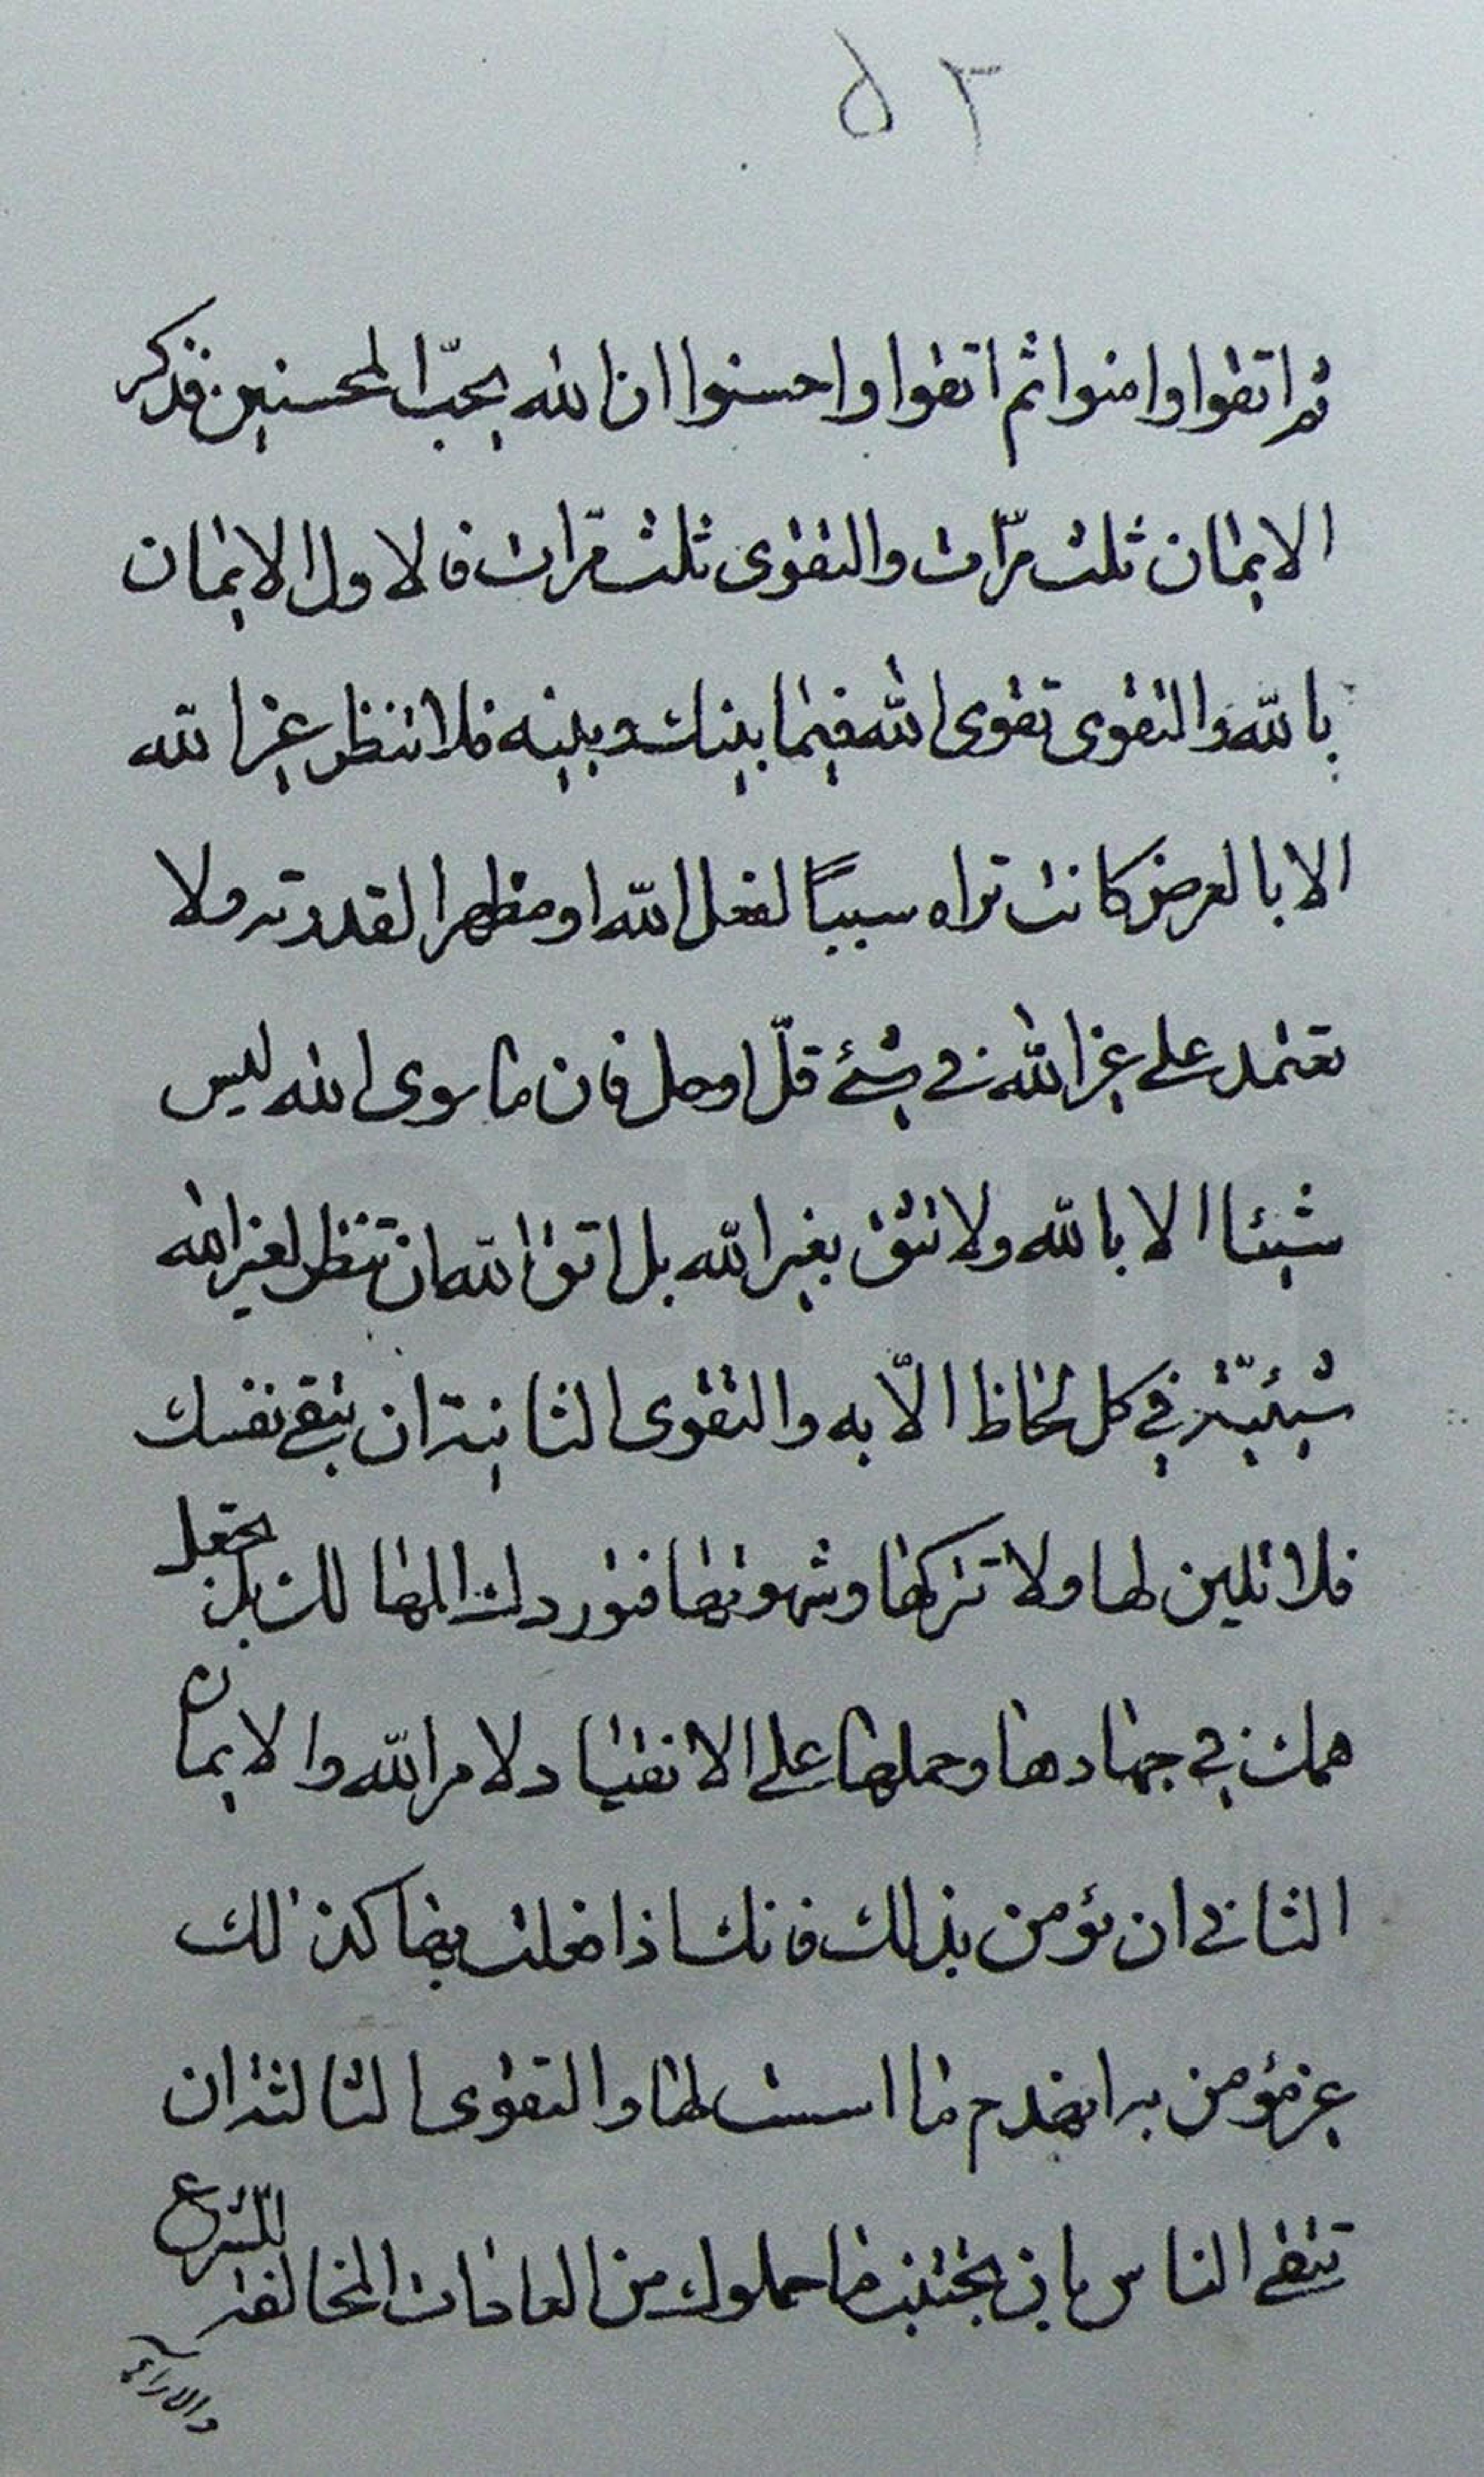 ٥٣
ثم اتقوا وامنوا ثم اتقوا واحسنوا ان الله يحبّ المحسنين فذكر
الايمان ثلث مرّات والتقوى ثلث مرّات فالاول الايمان
بالله والتقوى تقوى الله فيما بينك وبينه فلا تنظر غير الله
الا بالعرض كانت تراه سبباً لفعل الله او مظهرا لقدرته ولا
تعتمد على غير الله في شئ قلّ او جل فان ما سوى الله ليس
شيئا الا بالله ولا تثق بغير الله بل اتق الله ان تنظر لغير الله
شيئيّة في كل لحاظ الّا به والتقوى الثانية ان تتقي نفسك
فلا تلين لها ولا تتركها وشهوتها فتوردك المهالك بل تجعل
همك في جهادها وحملها على الانقياد لامر الله والايمان
الثاني ان تؤمن بذلك فانك اذا فعلت بها كذلك
غير مؤمن به انهدم ما اسست لها والتقوى الثالثة ان
تتقي الناس بان تجتنب ما حملوك من العادات المخالفة للشرع
والاراء